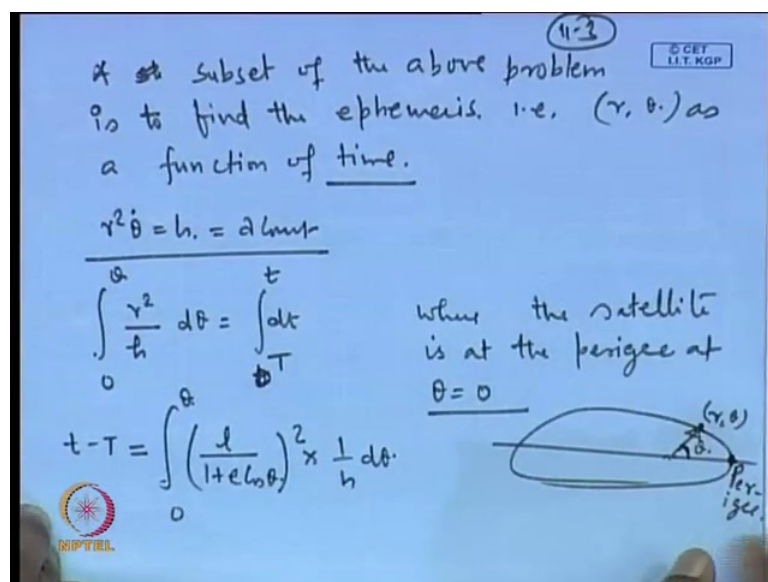 11-3
© CET
I.I.T. KGP
A subset of the above problem
is to find the ephemeris. i.e. (r, θ.) as
a function of time.
r²θ̇ = h. = a const
∫₀^θ r²/h dθ = ∫_T^t dt
where the satellite
is at the perigee at
θ = 0
t - T = ∫₀^θ (l/(1+e cos θ))² × 1/h dθ.
(r, θ)
θ.
Per-
igee.
NPTEL